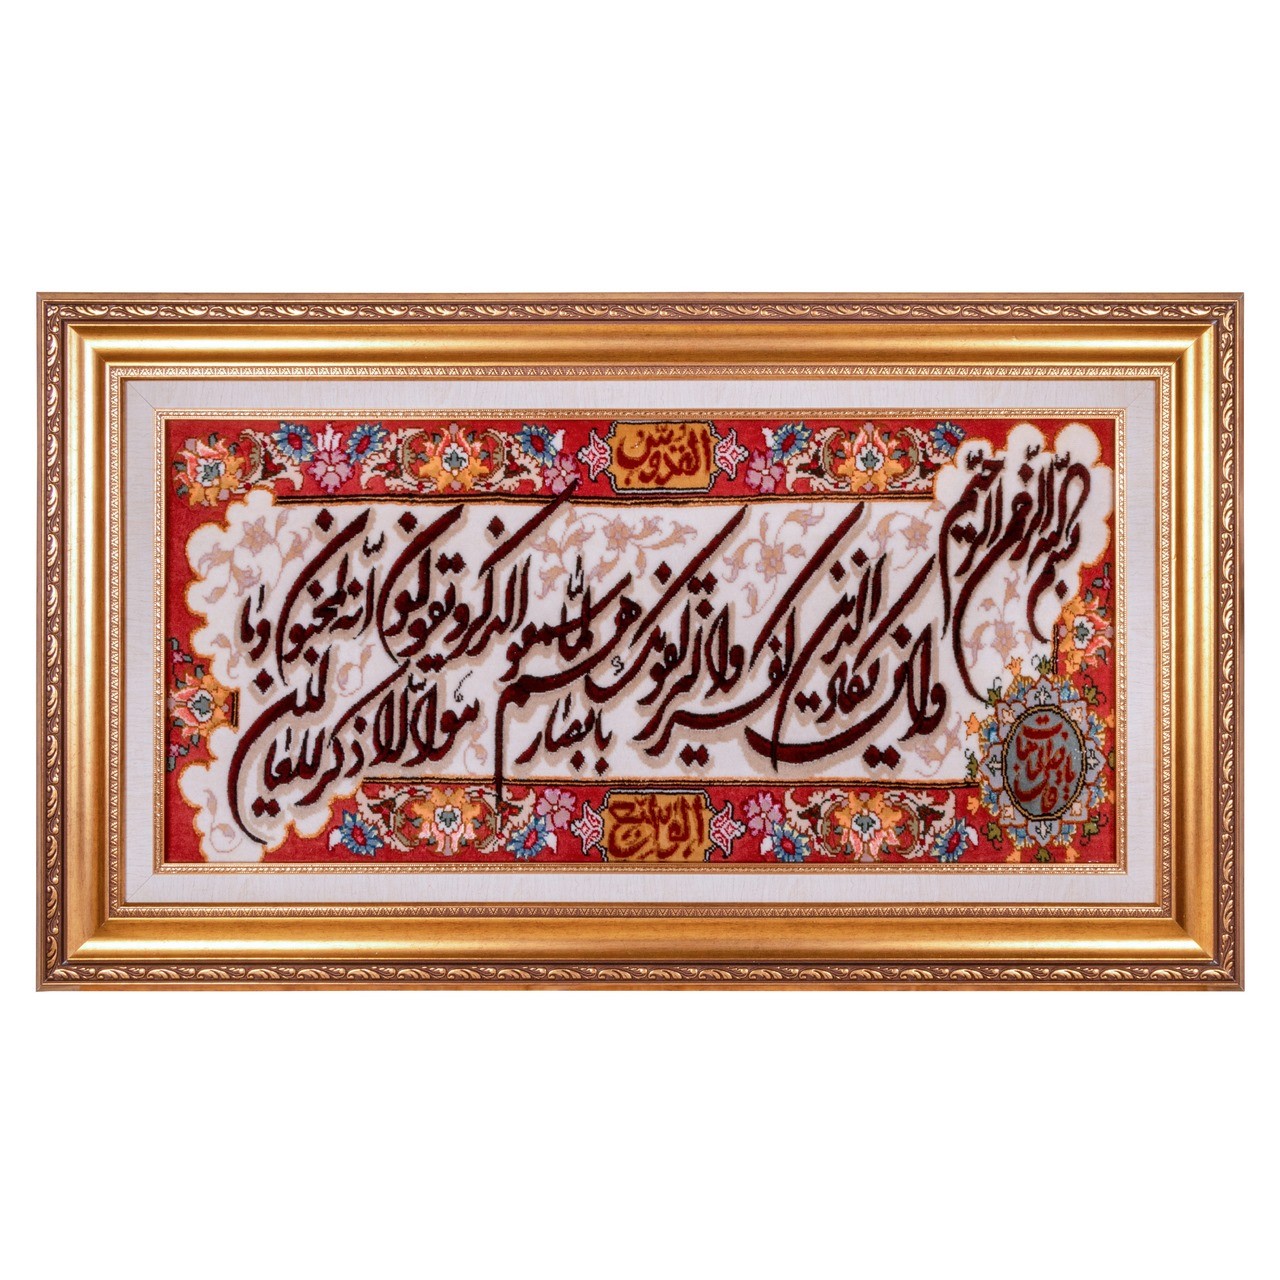 القدوس
بسم الله الرحمن الرحیم
وان یکاد الذین کفروا لیزلقونک بابصارهم لما سمعوا الذکر و یقولون انه لمجنون وما هو الا ذکر للعالمین
یا قاضی الحاجات
الواسع